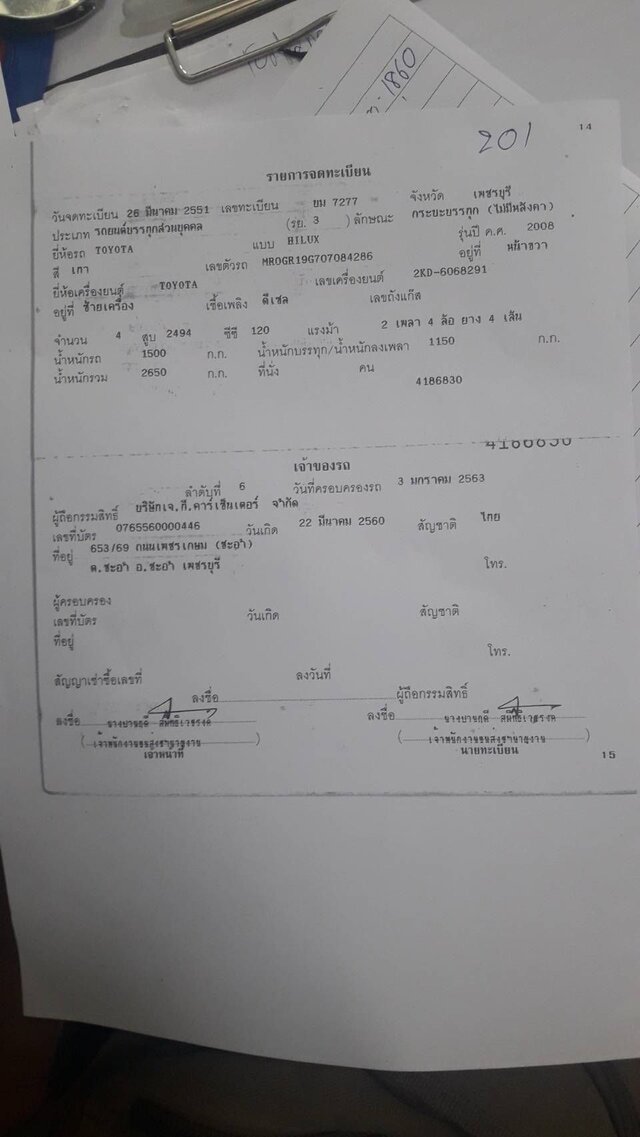 1860
201
14
รายการจดทะเบียน
วันจดทะเบียน 26 มีนาคม 2551 เลขทะเบียน ยม 7277 จังหวัด เพชรบุรี
ประเภท รถยนต์บรรทุกส่วนบุคคล (รย. 3 ) ลักษณะ กระบะบรรทุก (ไม่มีหลังคา)
ยี่ห้อรถ TOYOTA แบบ HILUX รุ่นปี ค.ศ. 2008
สี เทา เลขตัวรถ MR0GR19G707084286 อยู่ที่ หน้าขวา
ยี่ห้อเครื่องยนต์ TOYOTA เลขเครื่องยนต์ 2KD-6068291
อยู่ที่ ซ้ายเครื่อง เชื้อเพลิง ดีเซล เลขถังแก๊ส
จำนวน 4 สูบ 2494 ซีซี 120 แรงม้า 2 เพลา 4 ล้อ ยาง 4 เส้น
น้ำหนักรถ 1500 ก.ก. น้ำหนักบรรทุก/น้ำหนักลงเพลา 1150 ก.ก.
น้ำหนักรวม 2650 ก.ก. ที่นั่ง คน
4186830
4186830
เจ้าของรถ
ลำดับที่ 6 วันที่ครอบครองรถ 3 มกราคม 2563
ผู้ถือกรรมสิทธิ์ บริษัทเจ.ที.คาร์เซ็นเตอร์ จำกัด
เลขที่บัตร 0765560000446 วันเกิด 22 มีนาคม 2560 สัญชาติ ไทย
ที่อยู่ 653/69 ถนนเพชรเกษม (ชะอำ)
ต.ชะอำ อ.ชะอำ เพชรบุรี โทร.
ผู้ครอบครอง
เลขที่บัตร วันเกิด สัญชาติ
ที่อยู่ โทร.
สัญญาเช่าซื้อเลขที่ ลงวันที่
ลงชื่อ ผู้ถือกรรมสิทธิ์
ลงชื่อ ลงชื่อ
( เจ้าพนักงานขนส่งชำนาญงาน ) ( เจ้าพนักงานขนส่งชำนาญงาน )
เจ้าหน้าที่ นายทะเบียน
15